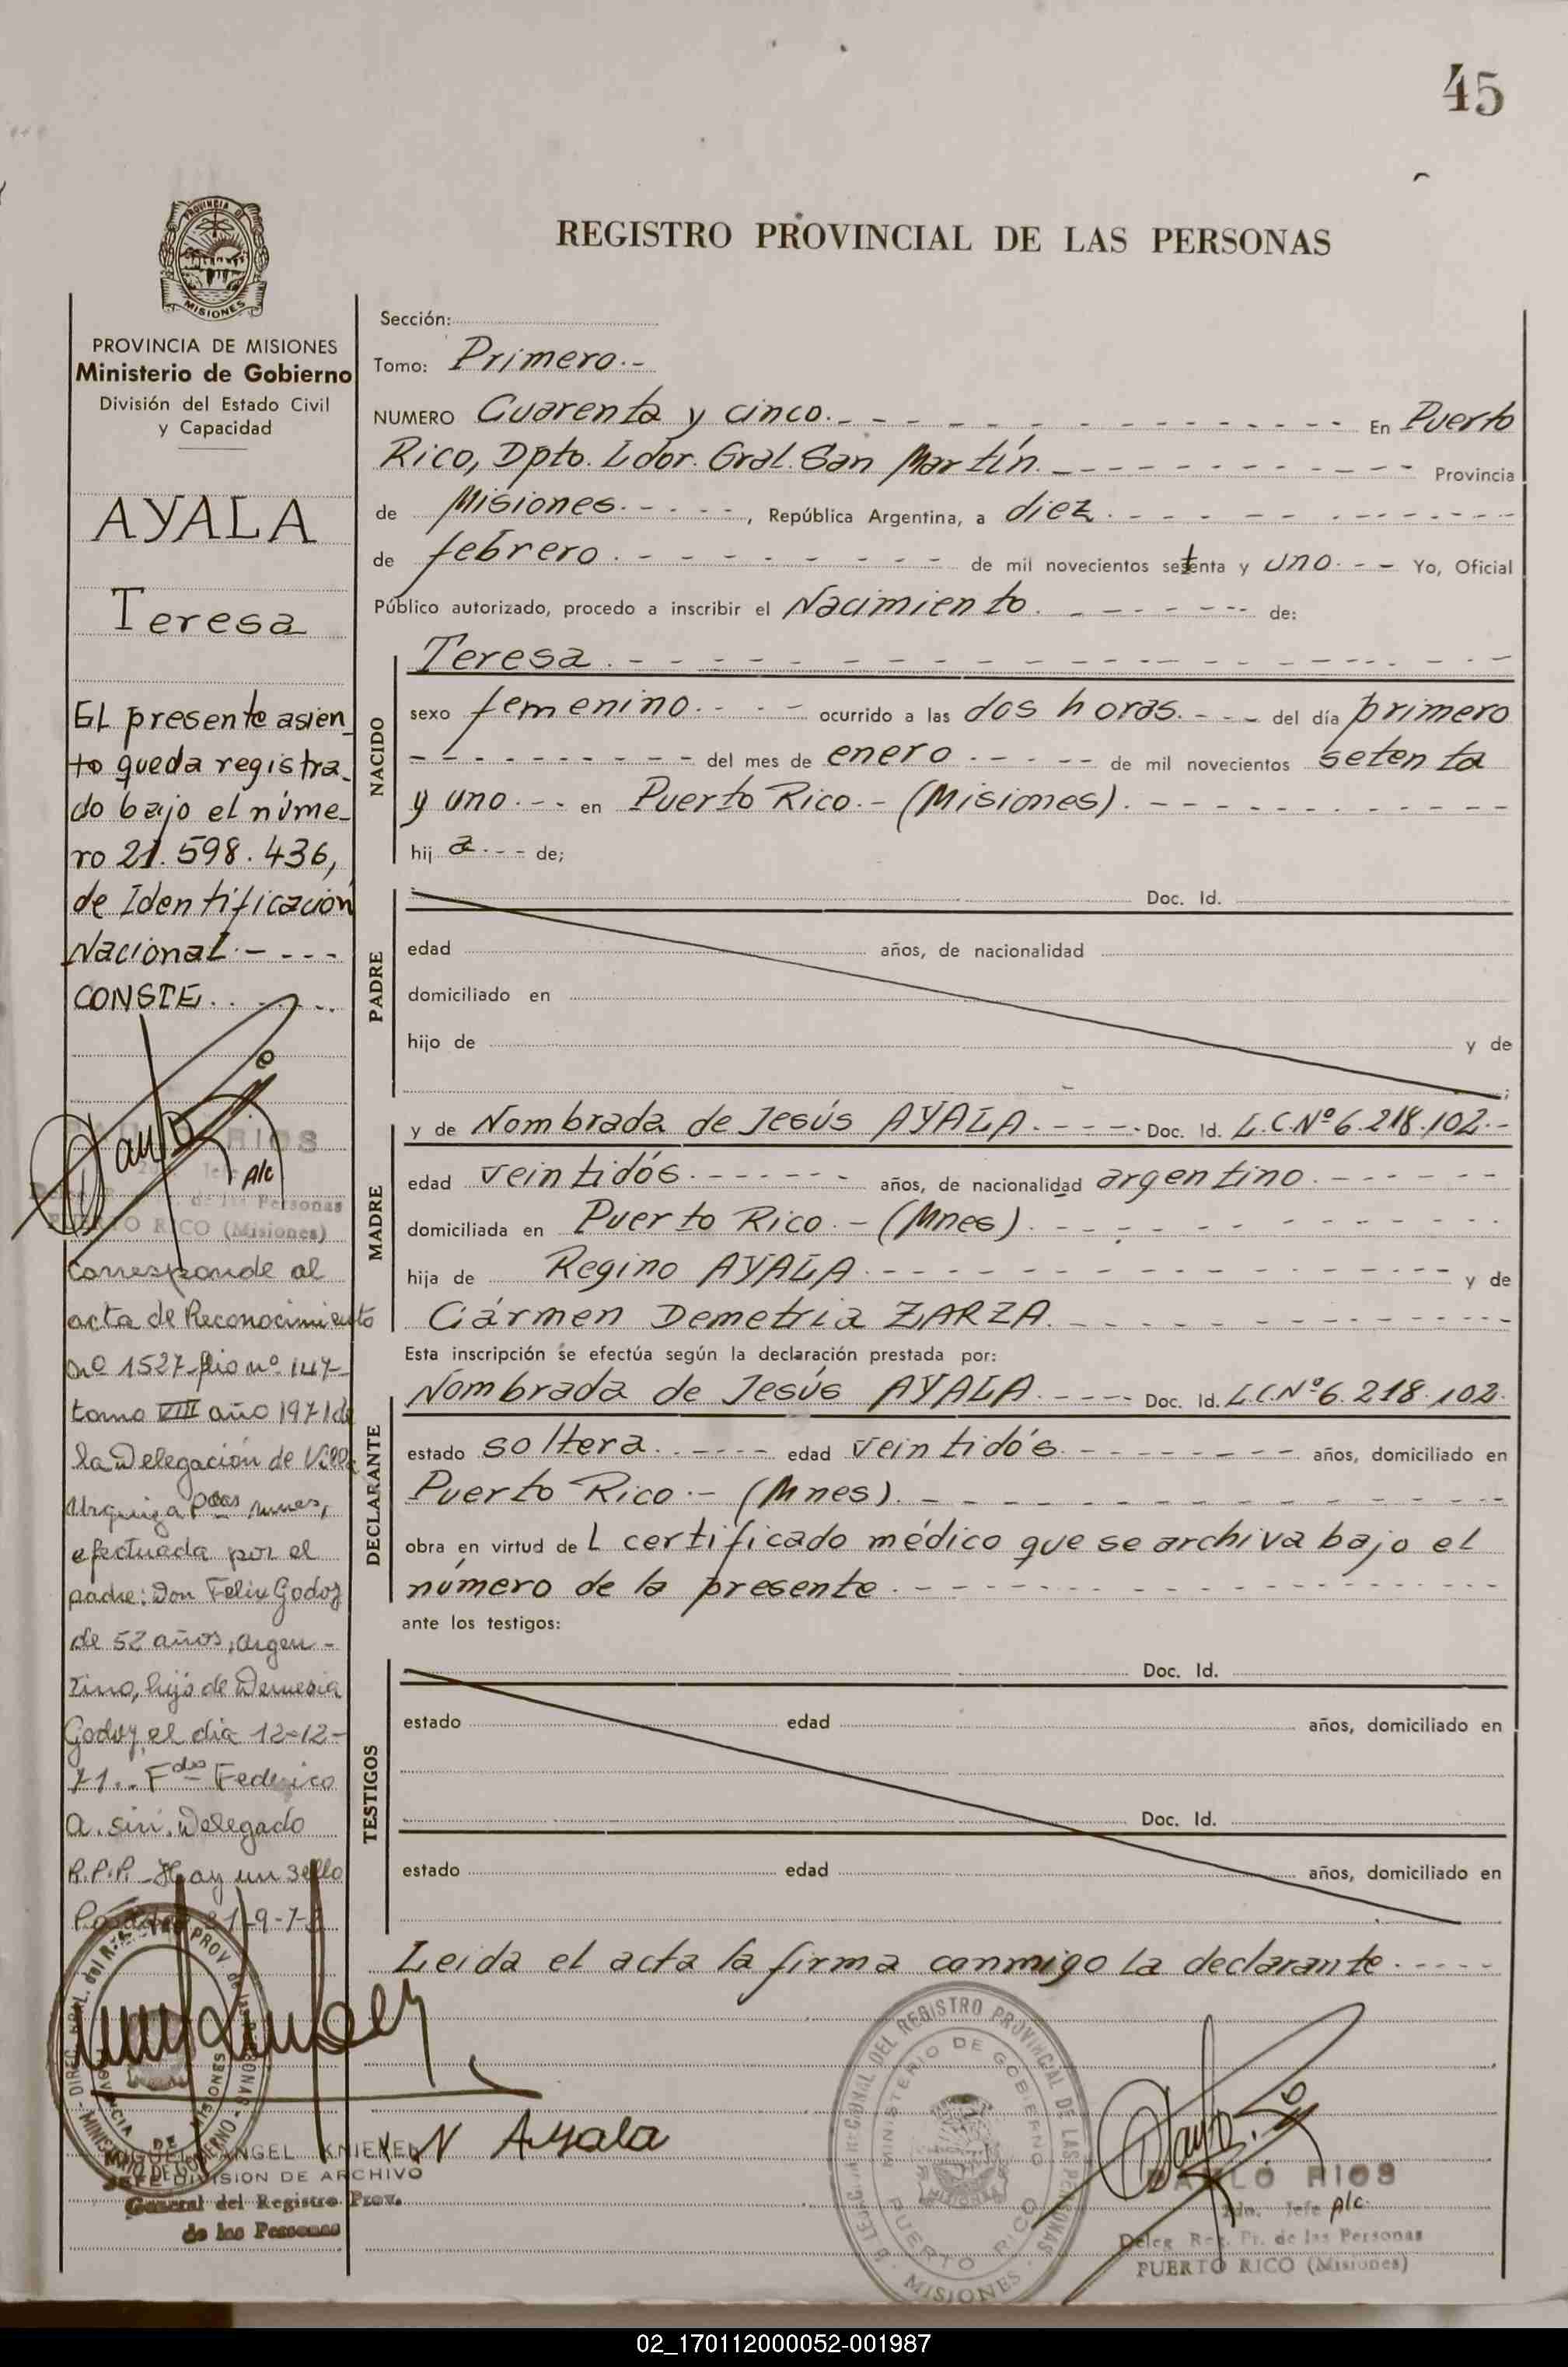 45
PROVINCIA DE
MISIONES
REGISTRO PROVINCIAL DE LAS PERSONAS
PROVINCIA DE MISIONES
Ministerio de Gobierno
División del Estado Civil
y Capacidad
AYALA
Teresa
El presente asien
to queda registra-
do bajo el núme-
ro 21.598.436,
de Identificación
Nacional.- - - -
CONSTE.
RIOS
A/c
de las Personas
PUERTO RICO (Misiones)
Corresponde al
acta de Reconocimiento
nº 1527 folio nº 147-
tomo VIII año 1971 de
la Delegación de Villa
Urquiza Pdas Mnes,
efectuada por el
padre: Don Felix Godoy
de 52 años, argen-
tino, hijo de Demesia
Godoy, el dia 12-12-
71.. Fdo Federico
A. Siri. Delegado
R.P.P. - Hay un sello
Sección:
Tomo: Primero.-
NUMERO Cuarenta y cinco.- En Puerto
Rico, Dpto. Ldor. Gral. San Martín.- Provincia
de Misiones.- , República Argentina, a diez.-
de febrero.- de mil novecientos setenta y uno.- Yo, Oficial
Público autorizado, procedo a inscribir el Nacimiento.- de:
NACIDO
Teresa.-
sexo femenino.- ocurrido a las dos horas.- del día primero
- del mes de enero.- de mil novecientos setenta
y uno.- en Puerto Rico.- (Misiones).-
hij a.- de;
PADRE
Doc. Id.
edad años, de nacionalidad
domiciliado en
hijo de y de
;
MADRE
y de Nombrada de Jesús AYALA.- Doc. Id. L.C.Nº6.218.102.-
edad veintidós.- años, de nacionalidad argentino.-
domiciliada en Puerto Rico.- (Mnes).-
hija de Regino AYALA.- y de
Cármen Demetria ZARZA.-
Esta inscripción se efectúa según la declaración prestada por:
DECLARANTE
Nombrada de Jesús AYALA.- Doc. Id. L.C.Nº6.218.102.
estado soltera.- edad veintidós.- años, domiciliado en
Puerto Rico.- (Mnes).-
obra en virtud de l certificado médico que se archiva bajo el
número de la presente.-
ante los testigos:
TESTIGOS
Doc. Id.
estado edad años, domiciliado en
Doc. Id.
estado edad años, domiciliado en
Leida el acta la firma conmigo la declarante.-
N Ayala
ANGEL KNIEVEL
JEFE DIVISION DE ARCHIVO
General del Registro Prov.
de las Personas
DEL REGISTRO PROVINCIAL DE LAS PERSONAS
MINISTERIO DE GOBIERNO
PUERTO RICO
MISIONES
PABLO RIOS
2do. Jefe A/c.
Deleg. Reg. Pr. de las Personas
PUERTO RICO (Misiones)
02_170112000052-001987